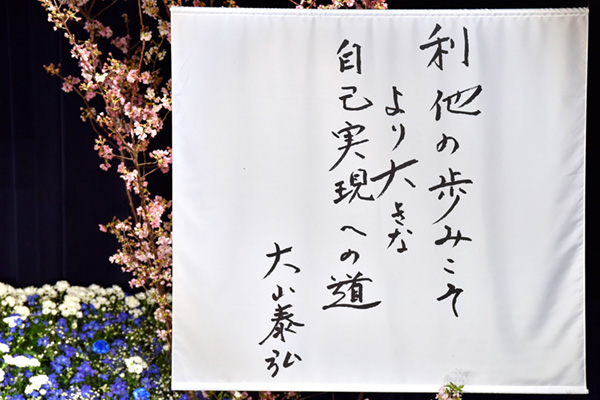 利他の歩みこそ
より大きな
自己実現への道
大山泰弘